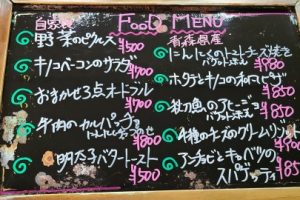 FOOD MENU
自家製
野菜のピクルス
¥500
キノコベーコンのサラダ
¥700
おまかせ3点オードブル
¥700
牛肉のカルパッチョ
¥800
明太子バタートースト
¥500
青森県産
にんにくのトマトチーズ焼き
バケット添え
¥950
ホタテとキノコの
¥850
秋刀魚のアヒージョ
バケット添え
¥850
4種のチーズのクリームリゾット
アンチョビとキャベツの
スパゲッティ
¥850